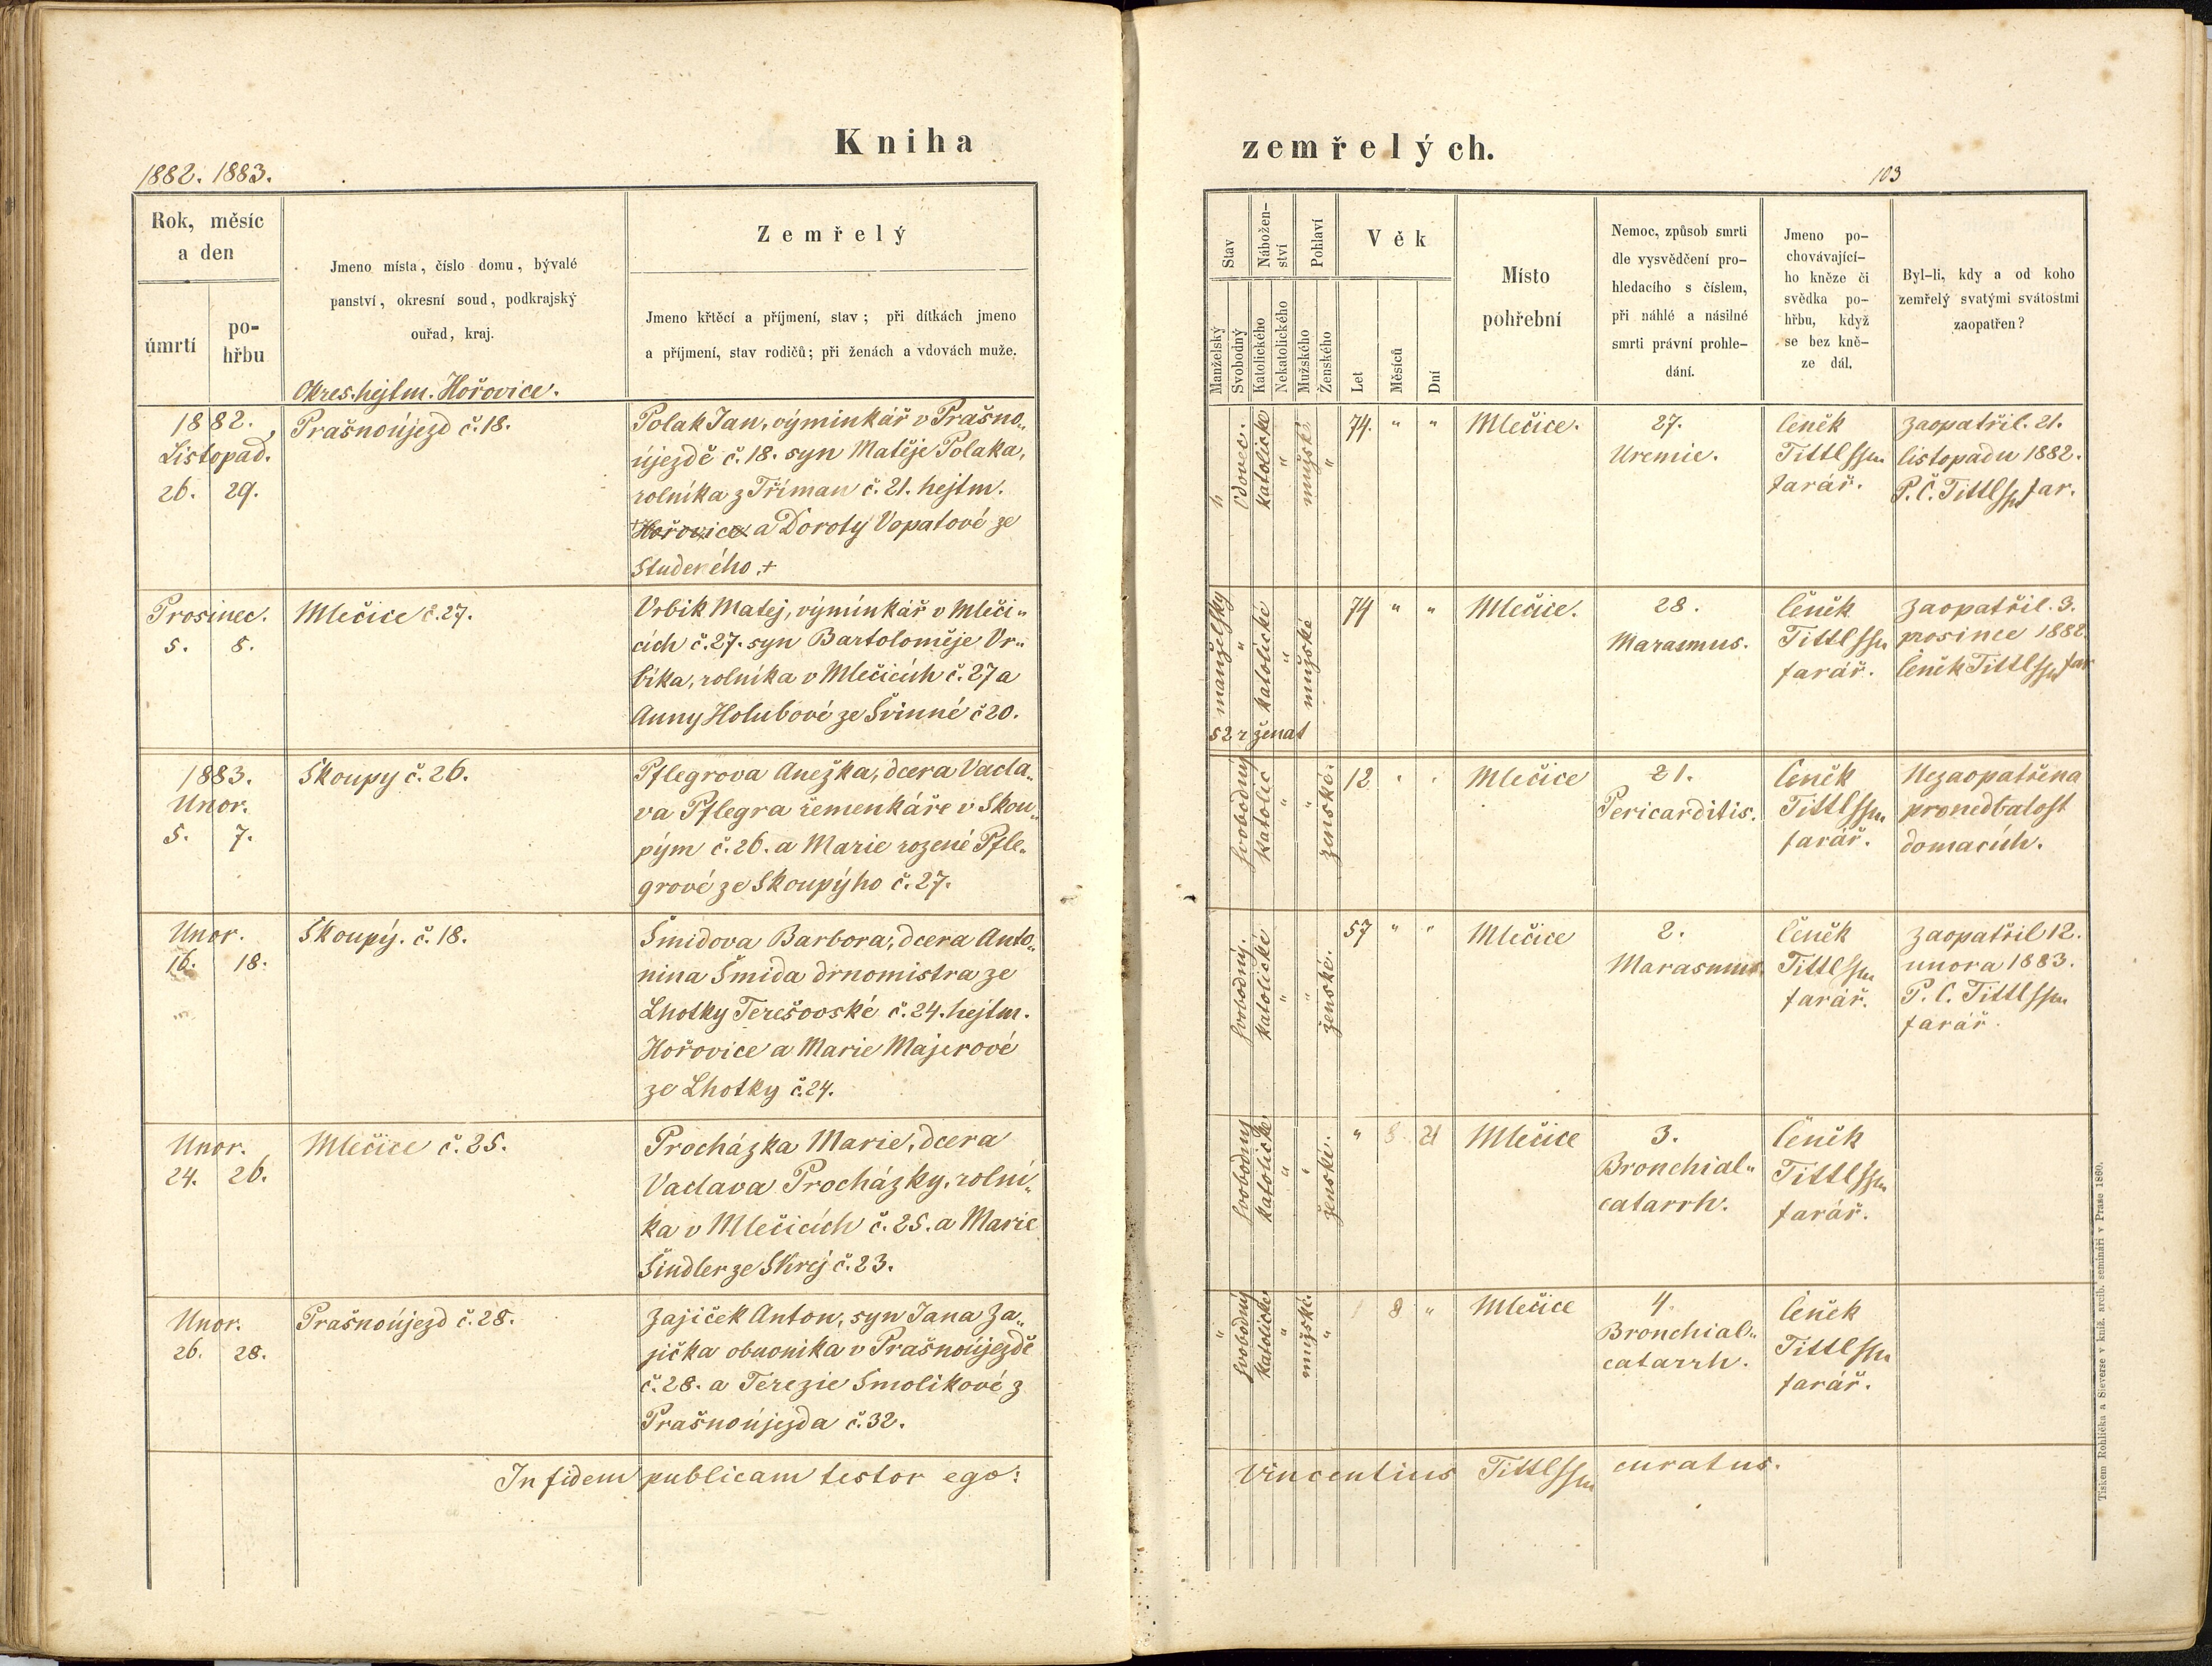 Kniha
1882. 1883.
Rok, měsíc
a den
úmrtí
po-
hřbu
Jmeno místa, číslo domu, bývalé
panství, okresní soud, podkrajský
ouřad, kraj.
Okres. hejtm. Hořovice.
Zemřelý
Jmeno křtěcí a příjmení, stav; při dítkách jmeno
a příjmení, stav rodičů; při ženách a vdovách muže.
1882.
Listopad.
26. 29.
Prašnoújezd č. 18.
Polak Jan, výminkář v Prašno„
újezdě č. 18. syn Matěje Polaka,
rolníka z Tříman č. 21. hejtm.
Hořovice a Doroty Vopatové ze
Studeného +
Prosinec.
5. 8.
Mlečice č. 27.
Vrbik Matej, výminkář v Mleči„
cích č. 27. syn Bartoloměje Vr„
bika, rolníka v Mlečicích č. 27 a
Anny Holubové ze Svinné č 20.
1883.
Unor.
5. 7.
Skoupy č. 26.
Pflegrova Anežka, dcera Vacla„
va Pflegra řemenkáře v Skou„
pým č. 26. a Marie rozené Pfle„
grové ze Skoupýho č. 27.
Unor.
16. 18.
Skoupý. č. 18.
Šmidova Barbora, dcera Anto„
nina Šmida drnomistra ze
Lhotky Terešovské č. 24. hejtm.
Hořovice a Marie Majerové
ze Lhotky č. 24.
Unor.
24. 26.
Mlečice č. 25.
Procházka Marie, dcera
Vaclava Procházky, rolní„
ka v Mlečicích č. 25. a Marie
Šindler ze Skrej č. 23.
Unor.
26. 28.
Prašnoújezd č. 28.
Zajiček Anton, syn Jana Za„
jička obuvnika v Prašnoújezdě
č. 28. a Terezie Smolikové z
Prašnoújezda č. 32.
In fidem publicam testor ego:
zemřelých.
103
Stav
Manželský
Svobodný
Nábožen-
ství
Katolického
Nekatolického
Pohlaví
Mužského
Ženského
Věk
Let
Měsíců
Dní
Místo
pohřební
Nemoc, způsob smrti
dle vysvědčení pro-
hledacího s číslem,
při náhlé a násilné
smrti právní prohle-
dání.
Jmeno po-
chovávající-
ho kněze či
svědka po-
hřbu, když
se bez kně-
ze dál.
Byl-li, kdy a od koho
zemřelý svatými svátostmi
zaopatřen?
vdovec.
katolické
"
mužské
"
74. " "
Mlečice.
27.
Uremie.
Čeněk
Tittlssen
farář.
Zaopatřil. 21.
listopadu 1882.
P. Č. Tittlssen far.
manželský
"
katolické
"
mužské
52 r ženat
74 " "
Mlečice.
28.
Marasmus.
Čeněk
Tittlssen
farář.
Zaopatřil. 3.
prosince 1882.
Čeněk Tittlssen far
svobodný
katolic
"
"
ženské.
12 " "
Mlečice
21.
Pericarditis.
Čeněk
Tittlssen
farář.
Nezaopatřena
pronedbalost
domacích.
svobodný.
katolické
"
"
ženské.
57 " "
Mlečice
2.
Marasmus.
Čeněk
Tittlssen
farář.
Zaopatřil 12.
unora 1883.
P. Č. Tittlssen
farář.
svobodný
katolické
"
"
ženské.
" 8 21
Mlečice
3.
Bronchial„
catarrh.
Čeněk
Tittlssen
farář.
"
svobodný
katolické
"
mužské.
"
1 8 "
Mlečice
4.
Bronchial„
catarrh.
Čeněk
Tittlssen
farář.
Vincentius Tittlssen curatus.
Tiskem Rohlíčka a Sieverse v kníž. arcib. semináři v Praze 1860.